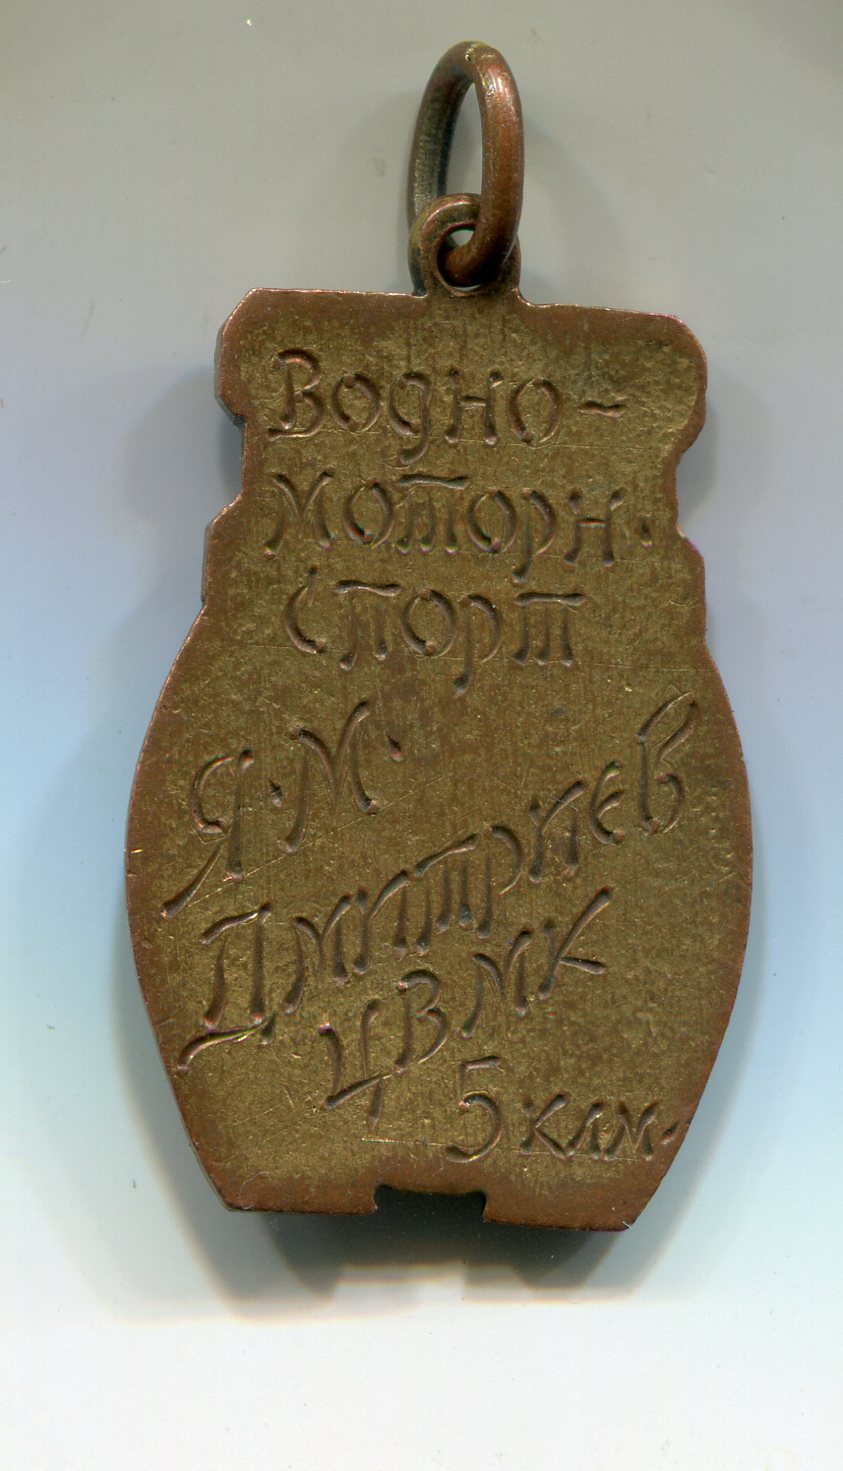 Водно-
моторн.
спорт
Я.М.
Дмитриев
ЦВМК
5 клм.